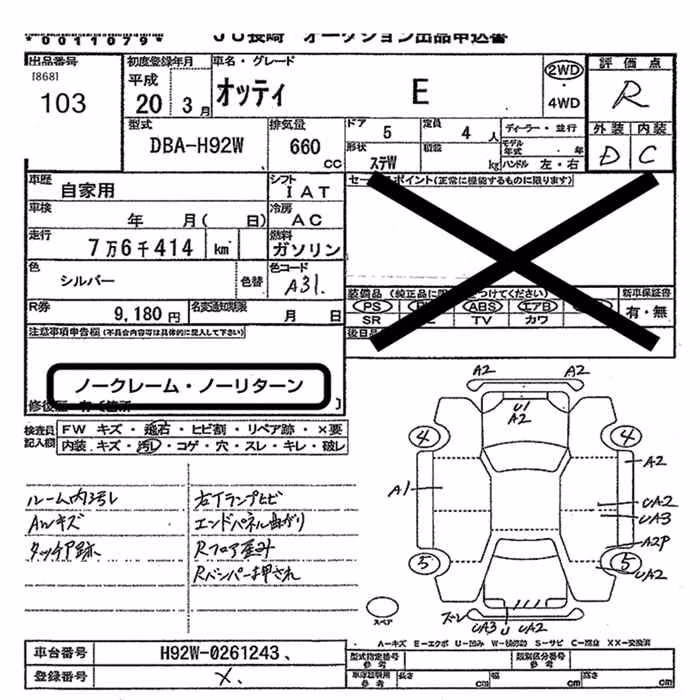 *0011079*
JU長崎 オークション出品申込書
出品番号
[868]
103
初度登録年月
平成
20年 3月
車名・グレード
オッティ E
2WD
・
4WD
評価点
R
外装 内装
D C
型式
DBA-H92W
排気量
660
CC
ドア 5
定員 4 人
形状
ステW
積載
kg
ディーラー・並行
モデル年式 ・ 年
ハンドル 左・右
車歴
自家用
シフト
IAT
車検
年 月( 日)
冷房
AC
走行
7万6千414 km
燃料
ガソリン
色
シルバー
色替
色コード
A31.
R券
9,180円
名変通知期限
月 日
セールスポイント(正常に機能するものに限ります)
装備品(純正品に
つけてください)
PS
ABS
エアB
SR
TV
カワ
新車保証書
有・無
後日品
注意事項申告欄(不具合内容等は具体的に記入して下さい)
ノークレーム・ノーリターン
検査員記入欄
FW キズ・飛石・ヒビ割・リペア跡・×要
内装 キズ・汚レ・コゲ・穴・スレ・キレ・破レ
ルーム内汚レ
AWキズ
タッチア跡
左Tランプヒビ
エンドパネル曲がり
Rフロア歪み
Rバンパー押され
A2 A2
U1
A2
4 4
A2
A1
UA2
UA3
A2P
5 5
UA2
スレ
UA3 U UA2
スペア
A-キズ E-エクボ U-凹み W-補修跡 S-サビ C-腐食 XX-交換済
車台番号 H92W-0261243、
登録番号 X、
型式指定番号
参考
類別区分番号
参考
車庫証明用
参考
長さ cm
幅 cm
高さ cm